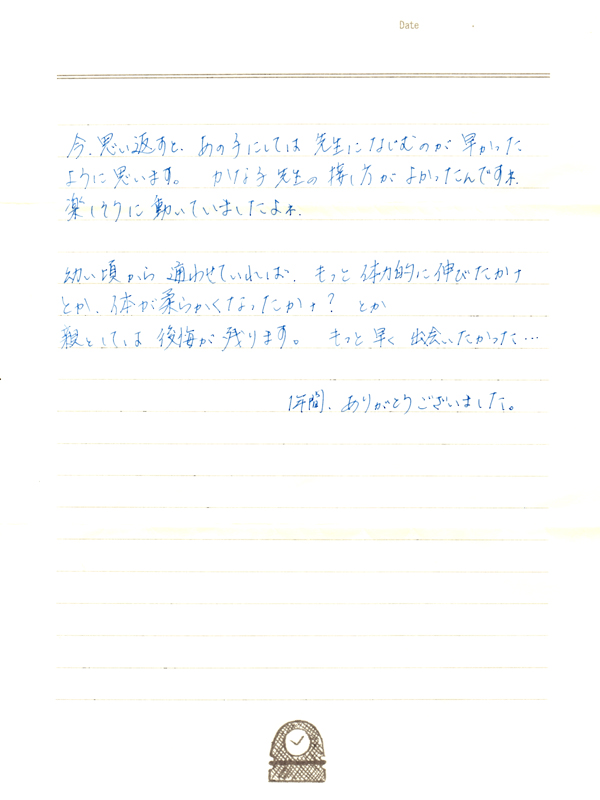 Date
今、思い返すと、あの子にしては 先生になじむのが 早かった
ように思います。 かな子先生の 接し方が よかったんですね
楽しそうに 動いていましたよネ.
幼い頃から 通わせていれば、もっと 体力的に 伸びたかナ
とか、体が柔らかくなったかナ? とか
親としては 後悔が 残ります。 もっと早く 出会いたかった…
1年間、ありがとうございました。